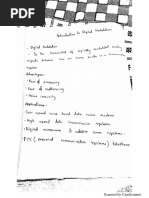 Introduction to Digital Modulation
Digital Modulation
is the transmittal of digitally modulated analog
signals between two or more points in a communication
system
Advantages:
- Ease of processing
- Ease of multiplexing
- Noise immunity
Applications:
- Low speed voice band data comm modems
- High speed data transmission systems
- Digital microwave & satellite comm systems
- PCS (personal communication systems) telephone
Scanned by CamScanner